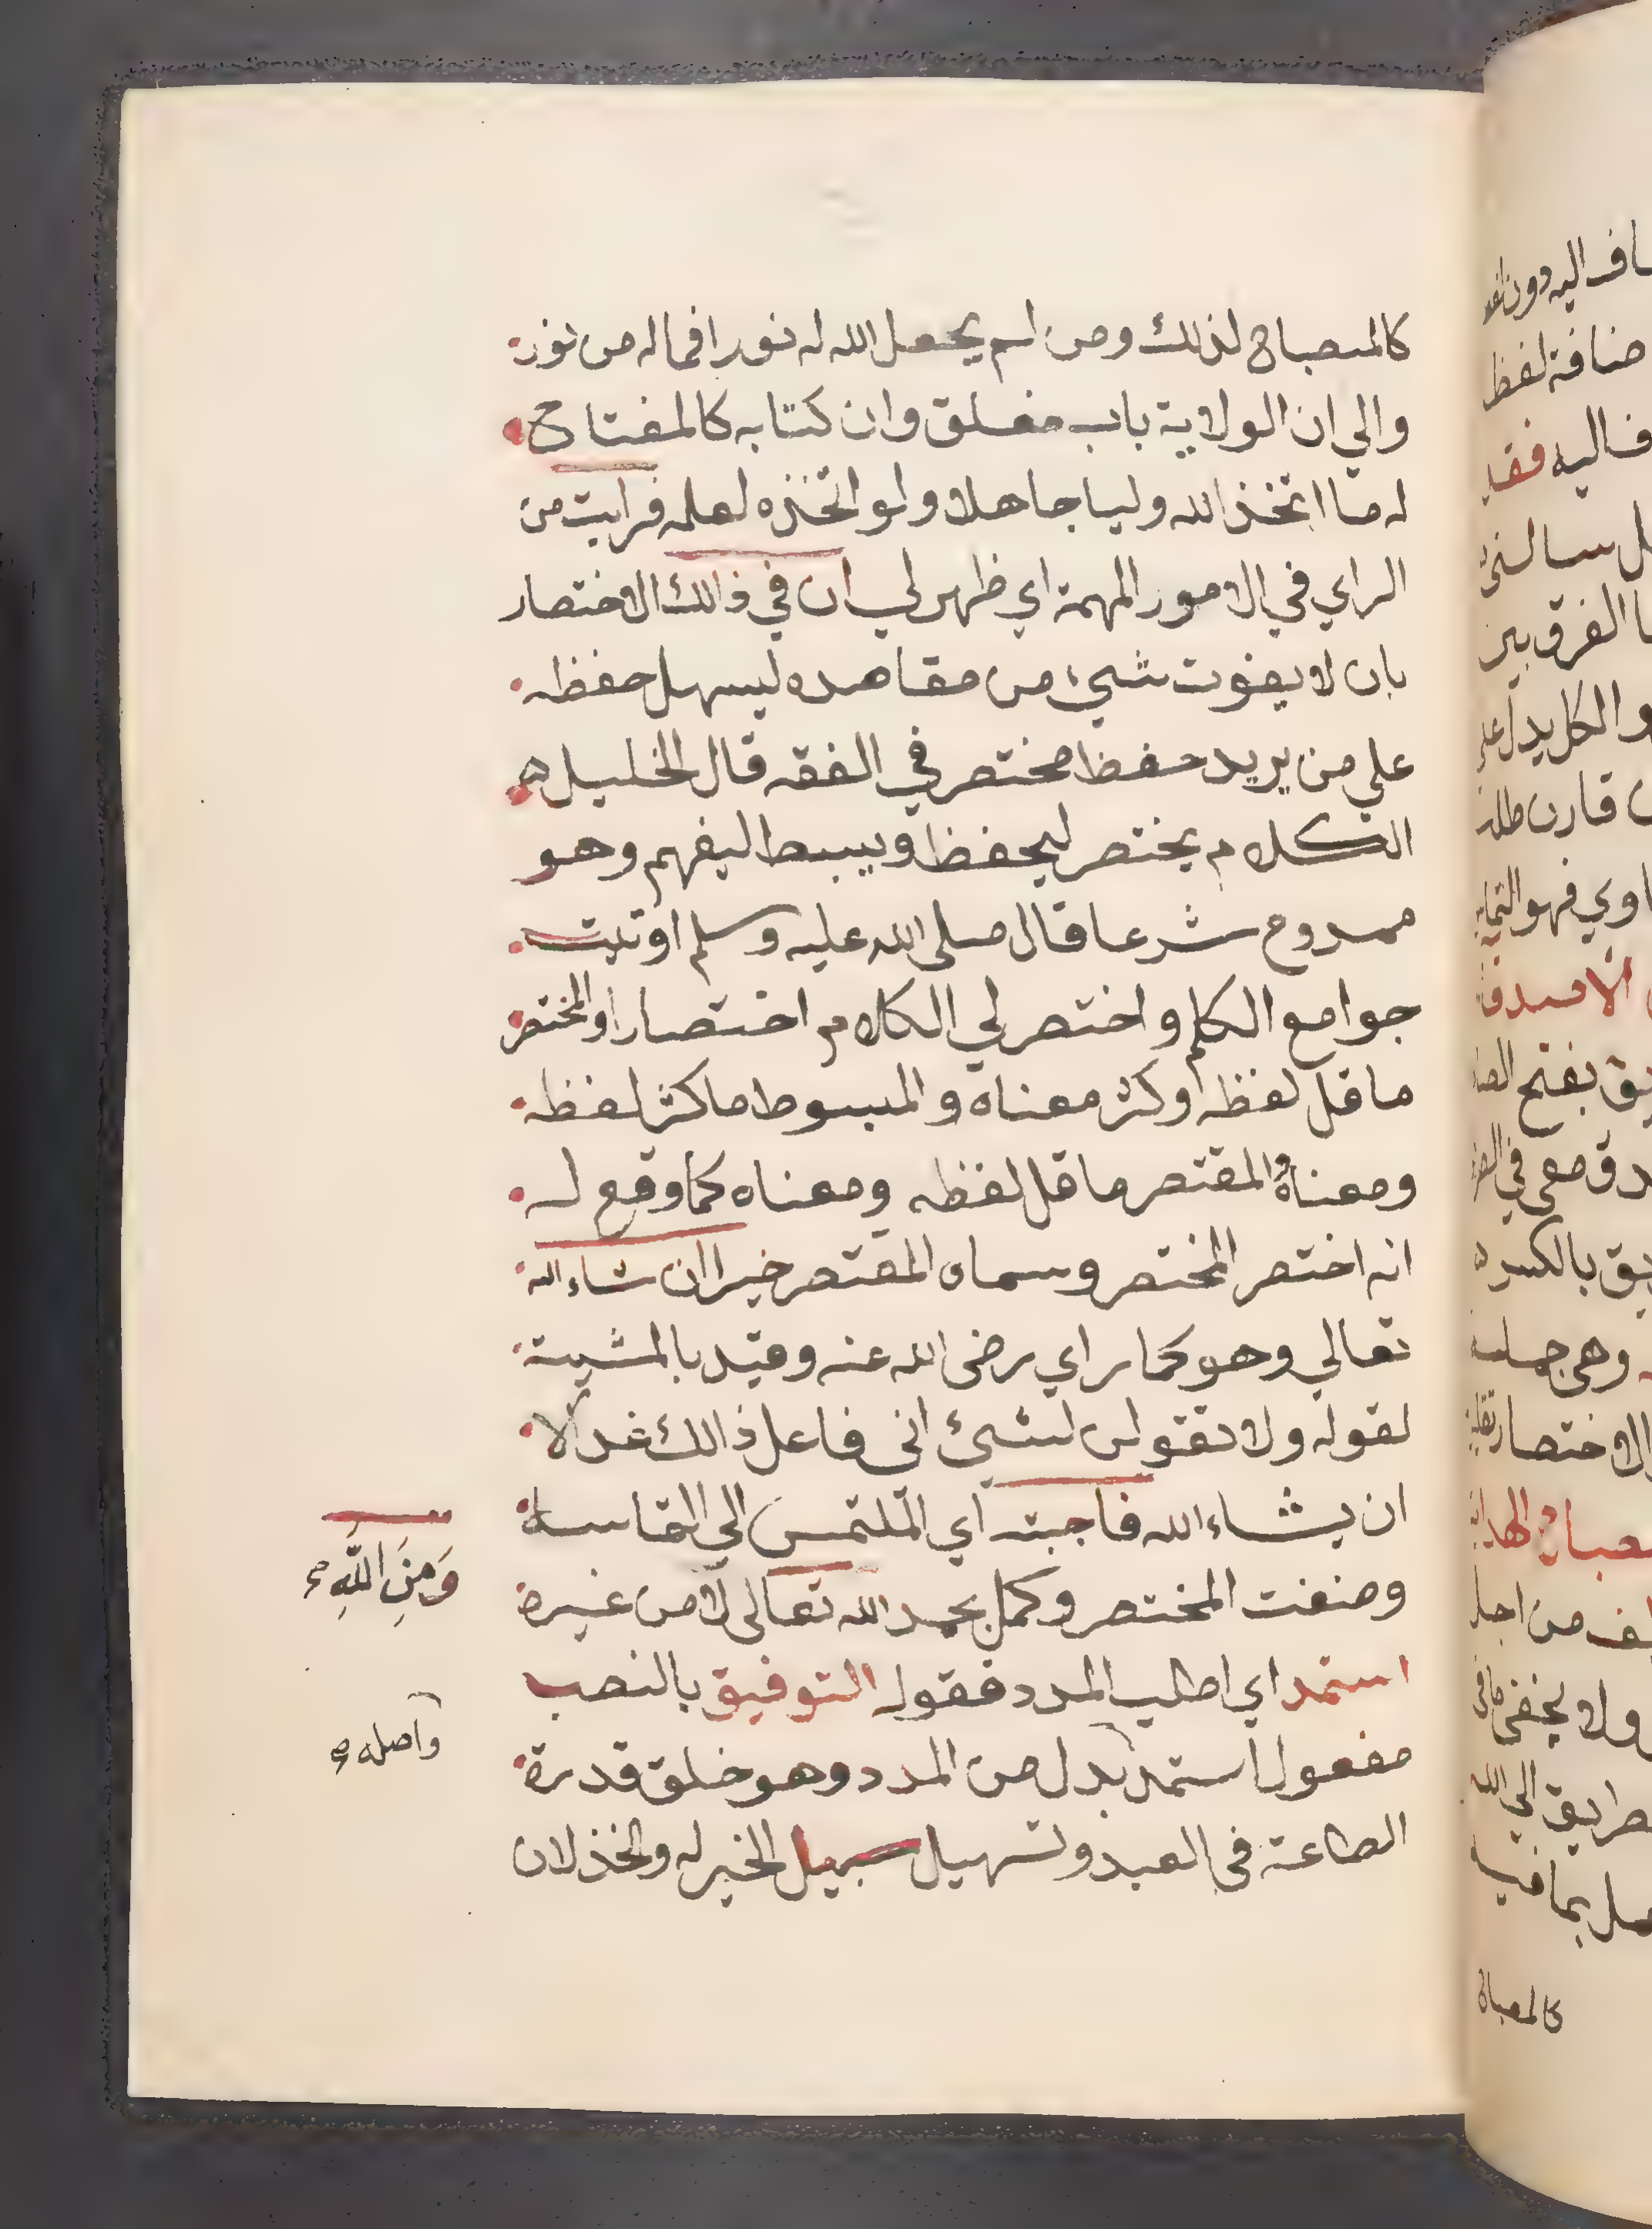 كالمصباح لذلك ومن لم يجعل الله له نورا فماله من نور
والي ان الولاية باب مغلق وان كتابه كالمفتاح
له ما اتخذ الله وليا جاهلا ولو اتخذه لعلمه فرايت من
الراي في الامور المهمة اي ظهر لي ان في ذالك الاختصار
بان لا يفوت شيئ من مقاصده ليسهل حفظه
علي من يريد حفظ مختصر في الفقه قال الخليل
الكلام يختصر ليحفظ ويبسط ليفهم وهو
ممدوح شرعا قال صلى الله عليه وسلم اوتيت
جوامع الكلم واختصر لي الكلام اختصارا والمختصر
ما قل لفظه وكثر معناه والمبسوط ما كثر لفظه
ومعناه والمقتصر ما قل لفظه ومعناه كما وقع له
انه اختصر المختصر وسماه المقتصر خيرا ان شاء الله
تعالي وهو كما راي رضى الله عنه وقيد بالمشيئة
لقوله ولا تقولن لشيئ انى فاعل ذالك غدا الا
ان يشاء الله فاجبته اي الملتمس الي التماسه
وصنفت المختصر وكمل بحمد الله تعالى لا من غيره
استمد اي اطلب المدد فقوله التوفيق بالنصب
مفعول استمد بدل من المدد وهو خلق قدرة
الطاعة في العبد وتسهيل سبيل الخير له والخذلان
وَمِنَ اللَّهِ
واصله
ضافة لفظ
ف اليه فقد
ا الفرق بين
و الكل يدل على
اوي فهو
يق بفتح
يق بالكسر
وهي جملة
والاختصار
ف من اجل
ولا يخفى
طريق الي الله
عمل بما فيه
كالمصباح